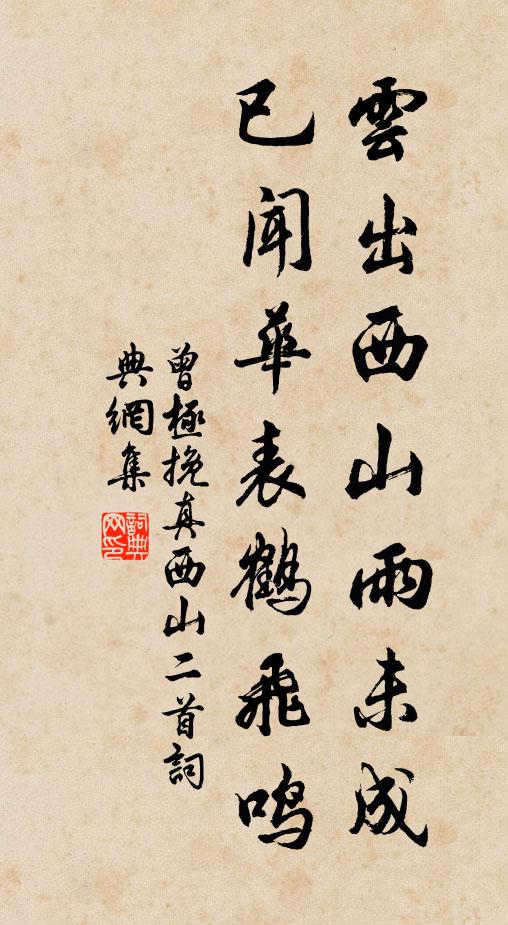 雲出西山雨未成
已聞華表鶴飛鳴
曾極挽真西山二首詞
典網集
詞典
网印